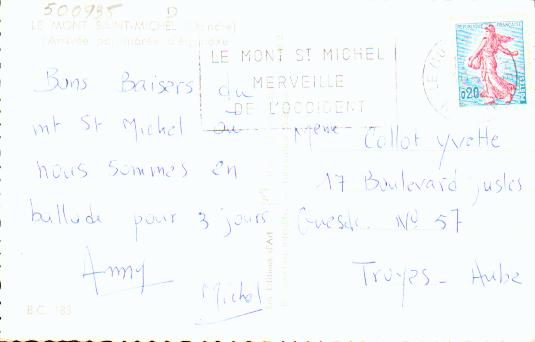 500935 D
LE MONT SAINT-MICHEL (Manche)
L'Arrivée par marée d'équinoxe
LE MONT ST MICHEL
MERVEILLE
DE L'OCCIDENT
RÉPUBLIQUE FRANÇAISE
0,20
Bons Baisers du
mt St Michel ou
nous sommes en
ballade pour 3 jours
Anny
Michel
Mème Collot Yvette
17 Boulevard jusles
Guesde N° 57
Troyes - Aube
B.C. 183
Les Editions d'Art